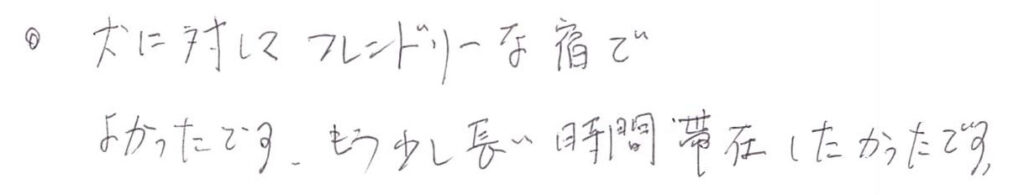 ◎ 犬に対してフレンドリーな宿で
よかったです。もう少し長い時間帯在したかったです。